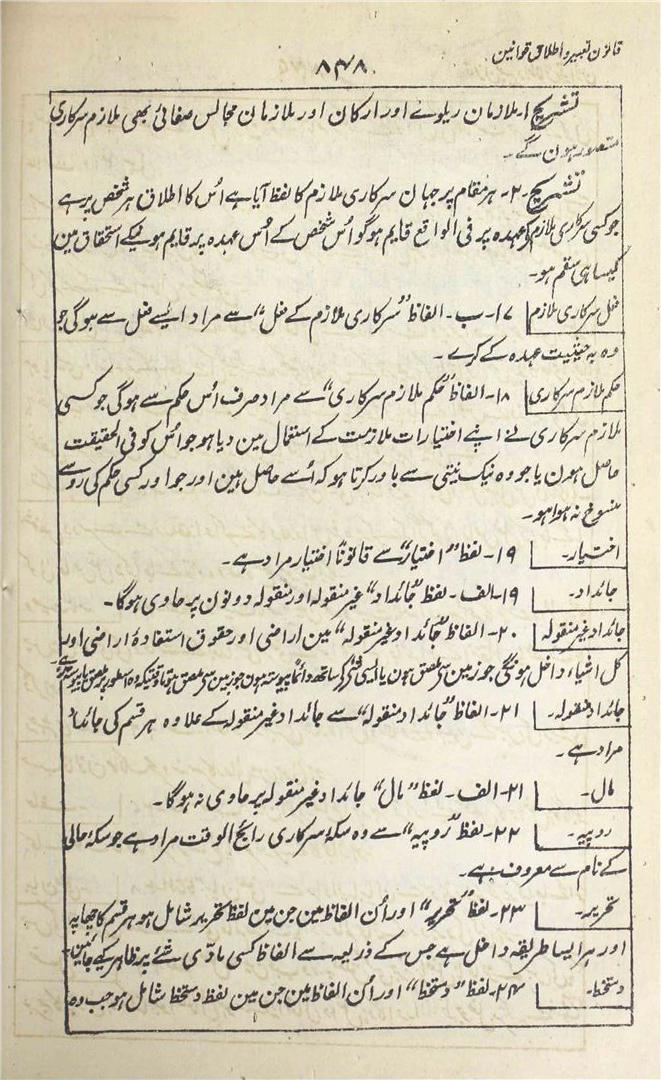 قانون تعبیر و اطلاق قوانین
۸۴۸
تشریح ۱۔ ملازمان ریلوے اور ارکان اور ملازمان مجالس صفائی بھی ملازم سرکاری
متصور ہون گے۔
تشریح ۲۔ ہر مقام پر جہان سرکاری ملازم کا لفظ آیا ہے اُس کا اطلاق ہر شخص پر ہے
جو کسی سرکاری ملازم کے عہدہ پر فی الواقع قایم ہو گو اُس شخص کے اُس عہدہ پر قایم ہونیکے استحقاق مین
کیسا ہی سقم ہو۔
فعل سرکاری ملازم ۱۷۔ب۔ الفاظ "سرکاری ملازم کے فعل" سے مراد ایسے فعل سے ہوگی جو
وہ بہ حیثیت عہدہ کے کرے۔
حکم ملازم سرکاری ۱۸۔ الفاظ "حکم ملازم سرکاری" سے مراد صرف اُس حکم سے ہوگی جو کسی
ملازم سرکاری نے اپنے اختیارات ملازمت کے استعمال مین دیا ہو جو اُس کو فی الحقیقت
حاصل ہون یا جو وہ نیک نیتی سے باور کرتا ہو کہ اُسے حاصل ہین اور جو اور کسی حکم کی رو سے
منسوخ نہ ہوا ہو۔
اختیار۔ ۱۹۔ لفظ "اختیار" سے قانوناً اختیار مراد ہے۔
جائداد۔ ۱۹۔الف۔ لفظ "جائداد" غیر منقولہ اور منقولہ دونون پر حاوی ہوگا۔
جائداد غیر منقولہ ۲۰۔ الفاظ "جائداد غیر منقولہ" مین اراضی اور حقوق استفادۂ اراضی اور
کل اشیاء داخل ہونگی جو زمین سے ملصق ہون یا ایسی شئے کے ساتھ دائماً پیوستہ ہون جو زمین سے ملصق ہو تاوقتیکہ وہ اسطور پر ملصق یا پیوستہ رہے۔
جائداد منقولہ۔ ۲۱۔ الفاظ "جائداد منقولہ" سے جائداد غیر منقولہ کے علاوہ ہر قسم کی جائداد
مراد ہے۔
مال۔ ۲۱۔الف۔ لفظ "مال" جائداد غیر منقولہ پر حاوی نہ ہوگا۔
روپیہ۔ ۲۲۔ لفظ "روپیہ" سے وہ سکۂ سرکاری رائج الوقت مراد ہے جو سکۂ حالی
کے نام سے معروف ہے۔
تحریر۔ ۲۳۔ لفظ "تحریر" اور اُن الفاظ مین جن مین لفظ تحریر شامل ہو ہر قسم کا چھاپہ
اور ہر ایسا طریقہ داخل ہے جس کے ذریعہ سے الفاظ کسی مادّی شئے پر ظاہر کیے جائین۔
دستخط۔ ۲۴۔ لفظ "دستخط" اور اُن الفاظ مین جن مین لفظ دستخط شامل ہو جب وہ